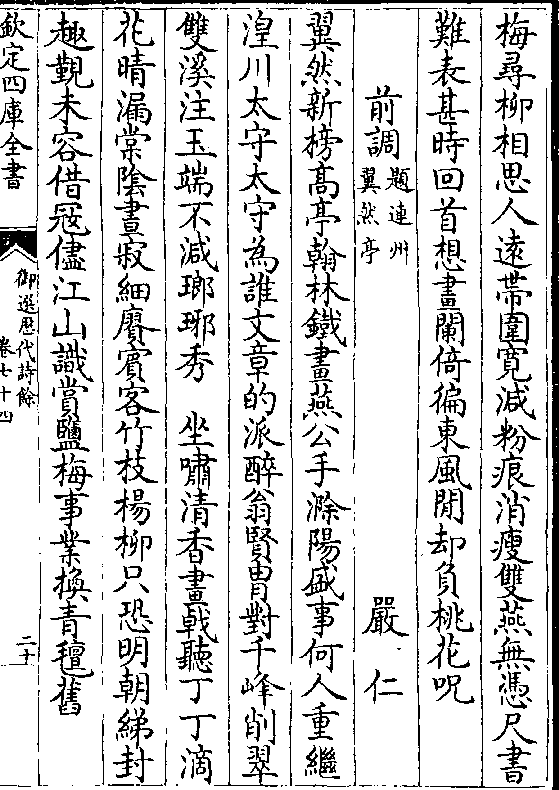 梅尋柳相思人遠帶圍寛減粉痕消瘦雙燕無憑尺書
難表甚時回首想畫闌倚徧東風閒却負桃花呪
前調題連州翼然亭 嚴仁
翼然新榜髙亭翰林鐵畫燕公手滁陽盛事何人重繼
湟川太守太守為誰文章的派醉翁賢胄對千峰削翠
雙溪注玉端不減瑯琊秀 坐嘯清香畫㦸聽丁丁滴
花晴漏棠陰晝寂細賡賓客竹枝楊柳只恐明朝綈封
趣覲未容借宼儘江山識賞鹽梅事業換青氊舊
欽定四庫全書
御選歴代詩餘
卷七十四
二十